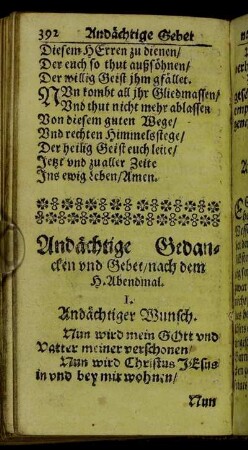 392 Andächtige Gebet
Diesem HErren zu dienen/
Der euch so thut außsöhnen/
Der willig Geist jhm gfället.
NVn kombt all jhr Gliedmassen/
Vnd thut nicht mehr ablassen
Von diesem guten Wege/
Vnd rechten Himmelsstege/
Der heilig Geist euch leite/
Jetzt vnd zu aller Zeite
Ins ewig Leben/Amen.
Andächtige Gedan-
cken vnd Gebet/nach dem
H. Abendmal.
I.
Andächtiger Wunsch.
Nun wird mein GOtt vnd
Vatter meiner verschonen/
Nun wird Christus JEsus
in vnd bey mir wohnen/
Nun